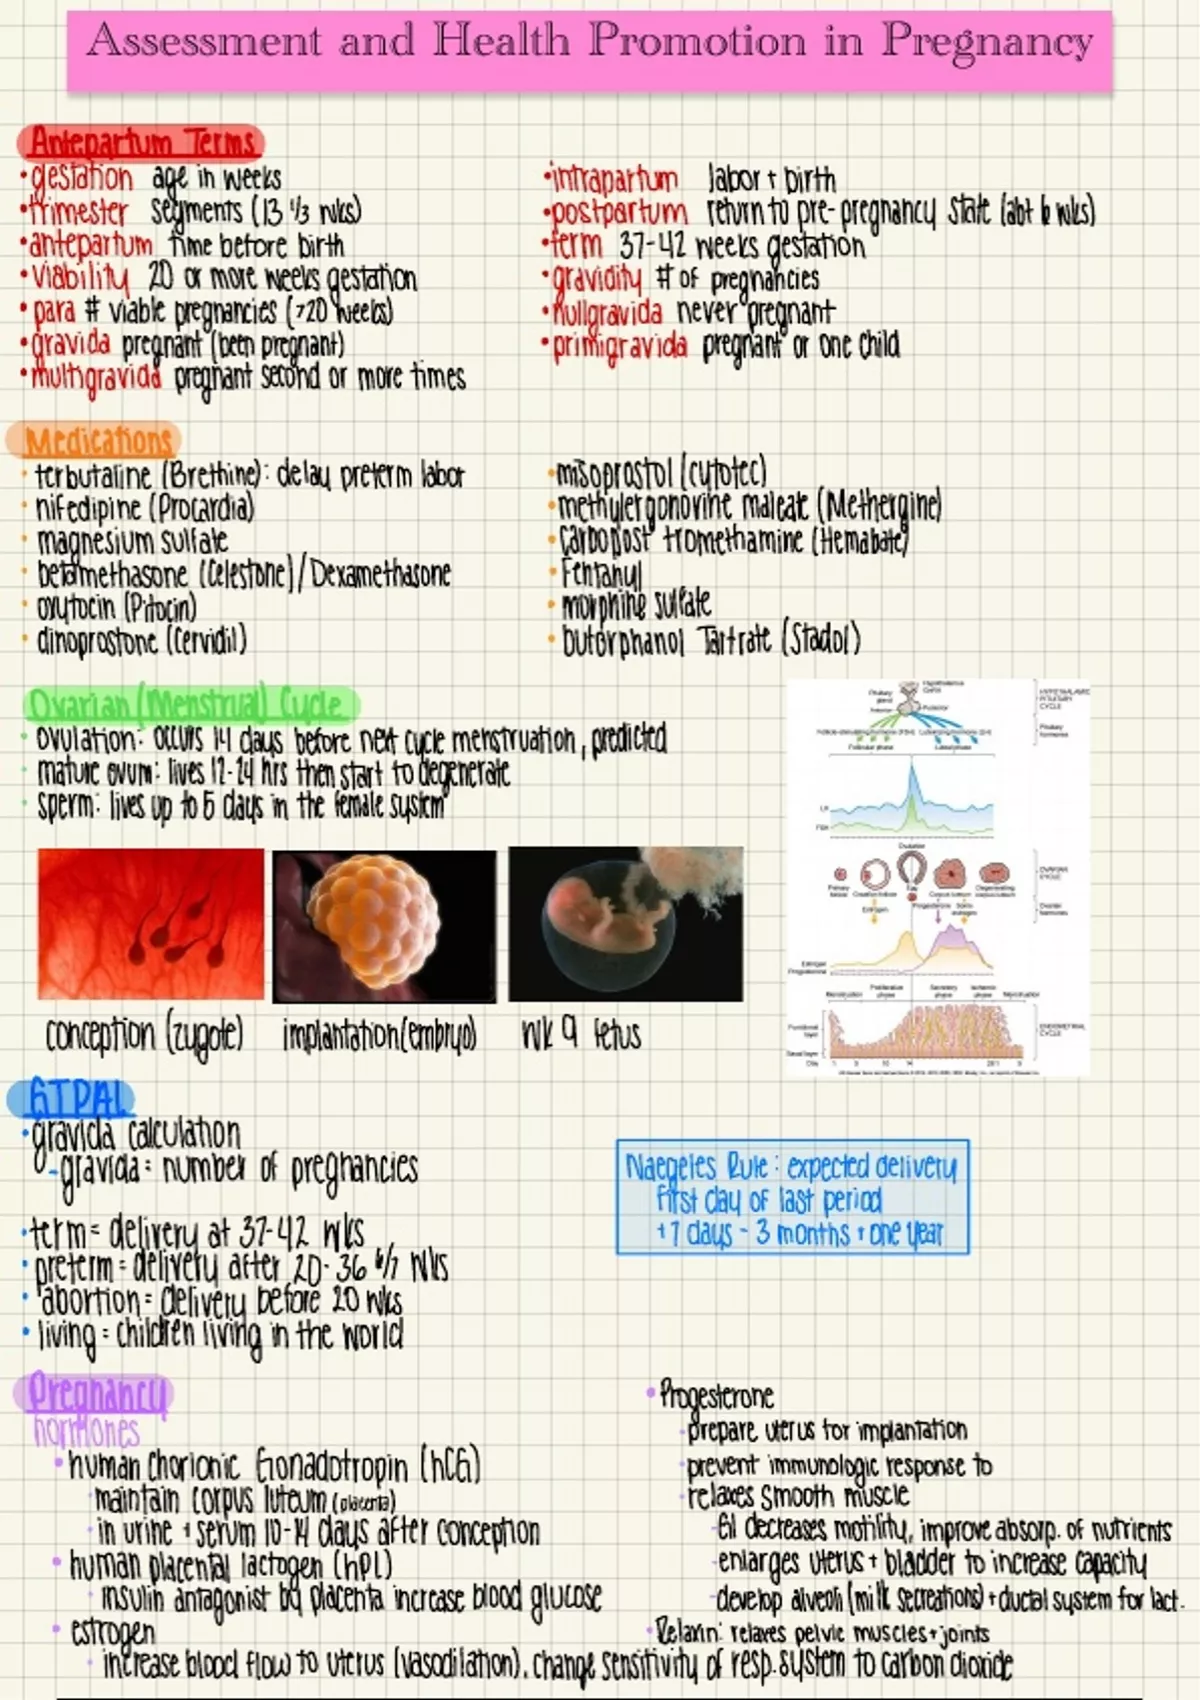 Assessment and Health Promotion in Pregnancy
Antepartum Terms
•gestation age in weeks
•trimester segments (13 1/3 wks)
•antepartum time before birth
•viability 20 or more weeks gestation
•para # viable pregnancies (>20 weeks)
•gravida pregnant (been pregnant)
•multigravida pregnant second or more times
•intrapartum labor + birth
•postpartum return to pre-pregnancy state (abt 6 wks)
•term 37-42 weeks gestation
•gravidity # of pregnancies
•nullgravida never pregnant
•primigravida pregnant or one child
Medications
• terbutaline (Brethine): delay preterm labor
• nifedipine (Procardia)
• magnesium sulfate
• betamethasone (Celestone)/Dexamethasone
• oxytocin (Pitocin)
• dinoprostone (Cervidil)
•misoprostol (cytotec)
•methylergonovine maleate (Methergine)
•Carbopost tromethamine (Hemabate)
•Fentanyl
•morphine sulfate
•butorphanol Tartrate (Stadol)
Ovarian (Menstrual) Cycle
• Ovulation: occurs 14 days before next cycle menstruation, predicted
• mature ovum: lives 12-24 hrs then start to degenerate
• sperm: lives up to 5 days in the female system
Pituitary gland
Anterior
Posterior
Follicular phase
Luteal phase
LH
FSH
Ovulation
Egg
Corpus luteum
Estrogen
Progesterone
Estrogen
Progesterone
Menstruation
Proliferative phase
Secretory phase
Ischemic phase
Menstruation
Functional layer
Basal layer
Day
OVARIAN CYCLE
Ovarian hormones
ENDOMETRIAL CYCLE
HYPOTHALAMIC PITUITARY CYCLE
Pituitary hormones
conception (zygote)
implantation(embryo)
wk 9 fetus
GTPAL
•gravida calculation
-gravida= number of pregnancies
•term= delivery at 37-42 wks
•preterm= delivery after 20-36 6/7 wks
•abortion= delivery before 20 wks
•living= children living in the world
Naegeles Rule: expected delivery
first day of last period
+7 days - 3 months + one year
Pregnancy
hormones
•human Chorionic Gonadotropin (hCG)
•maintain corpus luteum (placenta)
•in urine + serum 10-14 days after conception
•human placental lactogen (hPL)
•insulin antagonist by placenta increase blood glucose
•estrogen
•increase blood flow to uterus (vasodilation), change sensitivity of resp. system to carbon dioxide
•Progesterone
-prepare uterus for implantation
-prevent immunologic response to
-relaxes smooth muscle
-GI decreases motility, improve absorp. of nutrients
-enlarges uterus + bladder to increase capacity
-develop alveoli (milk secretions) + ductal system for lact.
•Relaxin: relaxes pelvic muscles+joints